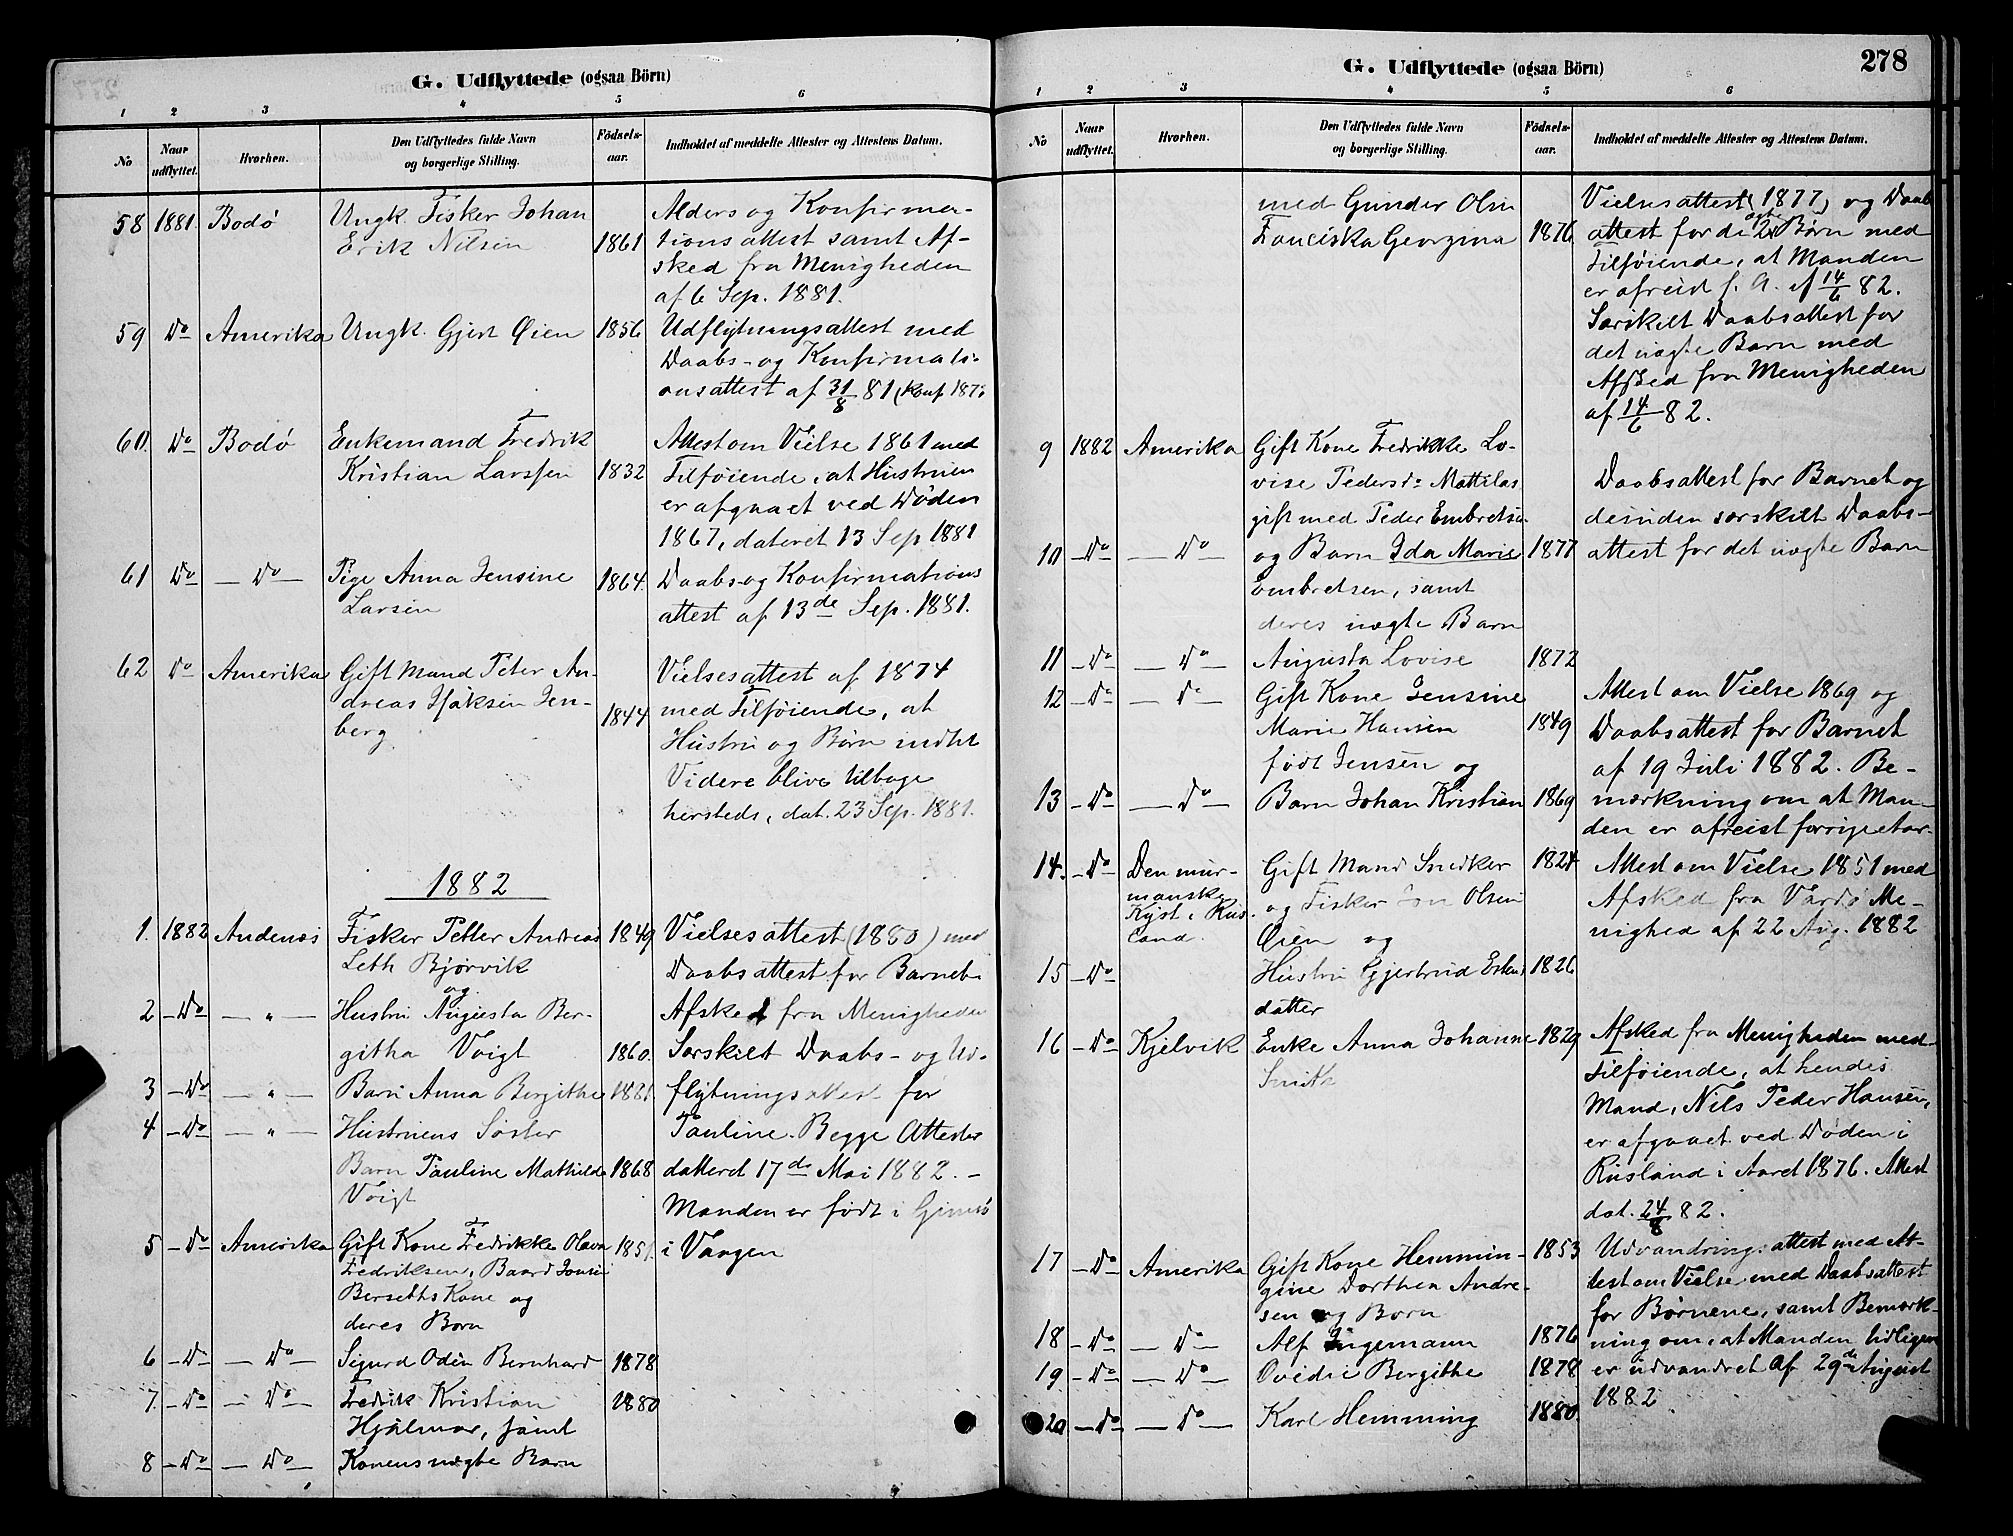 G. Udflyttede (ogsaa Börn)
1 2 3 4 5 6
No
Naar udflyttet.
Hvorhen.
Den Udflyttedes fulde Navn
og borgerlige Stilling.
Födsels-
aar.
Indholdet af meddelte Attester og Attestens Datum.
58 1881. Bodø Ungk. Fisker Johan Alders og Konfirma-
Erik Nilsen 1861 tionsattest samt Af-
sked fra Menigheden
af 6 Sep. 1881.
59 Do Amerika Ungk. Gjert Øien 1856 Udflytningsattest med
Daabs- og Konfirmati-
onsattest af 31/8 81 (Konf 187
60. Do Bodø Enkemand Fredrik Attest om Vielse 1861 med
Kristian Larssen 1832 Tilføiende, at Hustruen
er afgaaet ved Døden
1867, dateret 13 Sep 1881
61 Do — Do — Pige Anna Jensine 1864. Daabs- og Konfirmations
Larsen attest af 13de Sep. 1881.
62 Do Amerika Gift Mand Peter An- Vielsesattest af 1874
dreas Isaksen Jen- 1844 med Tilføiende, at
berg. Hustru og Børn indtil
Videre blive tilbage
hersteds, dat. 23 Sep. 1881.
1882
1. 1882 Andenæs Fisker Petter Andreas 1849 Vielsesattest (1880) med
Leth Bjørvik Daabsattest for Barnet.
og
2 - Do - — " — Hustru Augusta Ber- Afsked fra Menigheden
githa Voigt 1860. Særskilt Daabs- og Ud-
3 - Do - — " — Barn Anna Bergithe 1881. flytningsattest for
4 - Do - — " — Hustruens Søster Pauline. Begge Attester
Barn Pauline Mathilde 1868 datteret 17de Mai 1882. -
Voigt Manden er født i Gimsø
5 - Do Amerika Gift Kone Fredrikke Olava 1851. i Vaagen
Fredriksen, Baard Jonsen
Berseths Kone og
deres Børn
6 - Do - — Do — Sigurd Odin Bernhard 1878
7. - Do - — Do — Fredrik Kristian 1880
Hjalmar, samt
8 - Do - — Do — Konens uægte Barn
G. Udflyttede (ogsaa Börn)
278
1 2 3 4 5 6
No
Naar udflyttet.
Hvorhen.
Den Udflyttedes fulde Navn
og borgerlige Stilling.
Födsels-
aar.
Indholdet af meddelte Attester og Attestens Datum.
med Gunder Olsen Vielsesattest (1877) og Daabs
Franciska Georgina 1876. attest for de ægte 2 Børn med
Tilføiende, at Manden
er afreist f. A. af 14/6 82.
Særskilt Daabsattest for
det uægte Barn med
Afsked fra Menigheden
af 14/6 82.
9 1882 Amerika Gift Kone Fredrikke Lo-
vise Pedersdr Mattilas Daabsattest for Barnet og
gift med Peder Embretsen desuden særskilt Daabs-
10 - Do - — Do — og Barn Ida Marie 1877 attest for det uægte Barn
Embretsen, samt
deres uægte Barn
11 - Do - — Do — Augusta Lovise 1872
12 - Do - — Do — Gift Kone Jensine Attest om Vielse 1869 og
Marie Hansen 1849 Daabsattest for Barnet
født Jensen og af 19 Juli 1882. Be-
13 - Do - — Do — Barn Johan Kristian 1869 mærkning om at Man-
den er afreist forrige Aar.
14. - Do - Den mur- Gift Mand Snedker 1824 Attest om Vielse 1851 med
manske og Fisker Jon Olsen Afsked fra Vardø Me-
Kyst i Rus- Øien og nighed af 22 Aug. 1882
land.
15 - Do - Hustru Gjertrud Esten 1826
datter
16 - Do - Kjelvik Enke Anna Johanne 1829 Afsked fra Menigheden med
Smith Tilføiende, at hendes
Mand, Nils Peder Hansen,
er afgaaet ved Døden i
Rusland i Aaret 1876. Attest
dat. 24/8 82.
17 - Do - Amerika Gift Kone Hemmin- 1853 Udvandringsattest med At-
gine Dorthea Andre- test om Vielse med Daabsattest
sen og Børn for Børnene, samt Bemærk-
18 - Do - — Do — Alf Ingemann 1876 ning om, at Manden tidligere
19 - Do - — Do — Ovidie Bergithe 1878 er udvandret af 29de August
20 - Do - — Do — Karl Hemming 1880. 1882